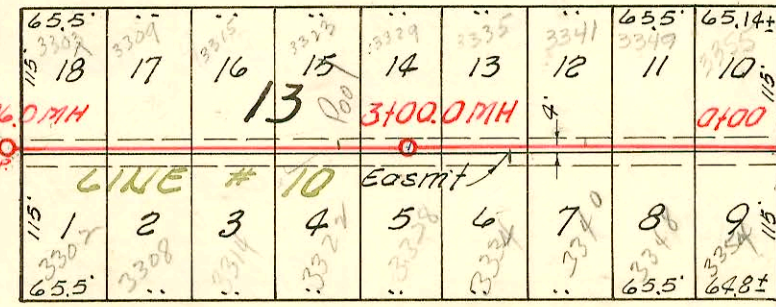 65.5' 65.5' 65.14±
3303 3309 3315 3323 3329 3335 3341 3349 3355
115' 18 17 16 15 14 13 12 11 10 115'
13 Pool
6.0MH 3+00.0MH 4' 0+00
LINE # 10 Easmt
115' 1 2 3 4 5 6 7 8 9 115'
3302 3308 3314 3322 3328 3334 3340 3348 3354
65.5' 65.5' 64.8±